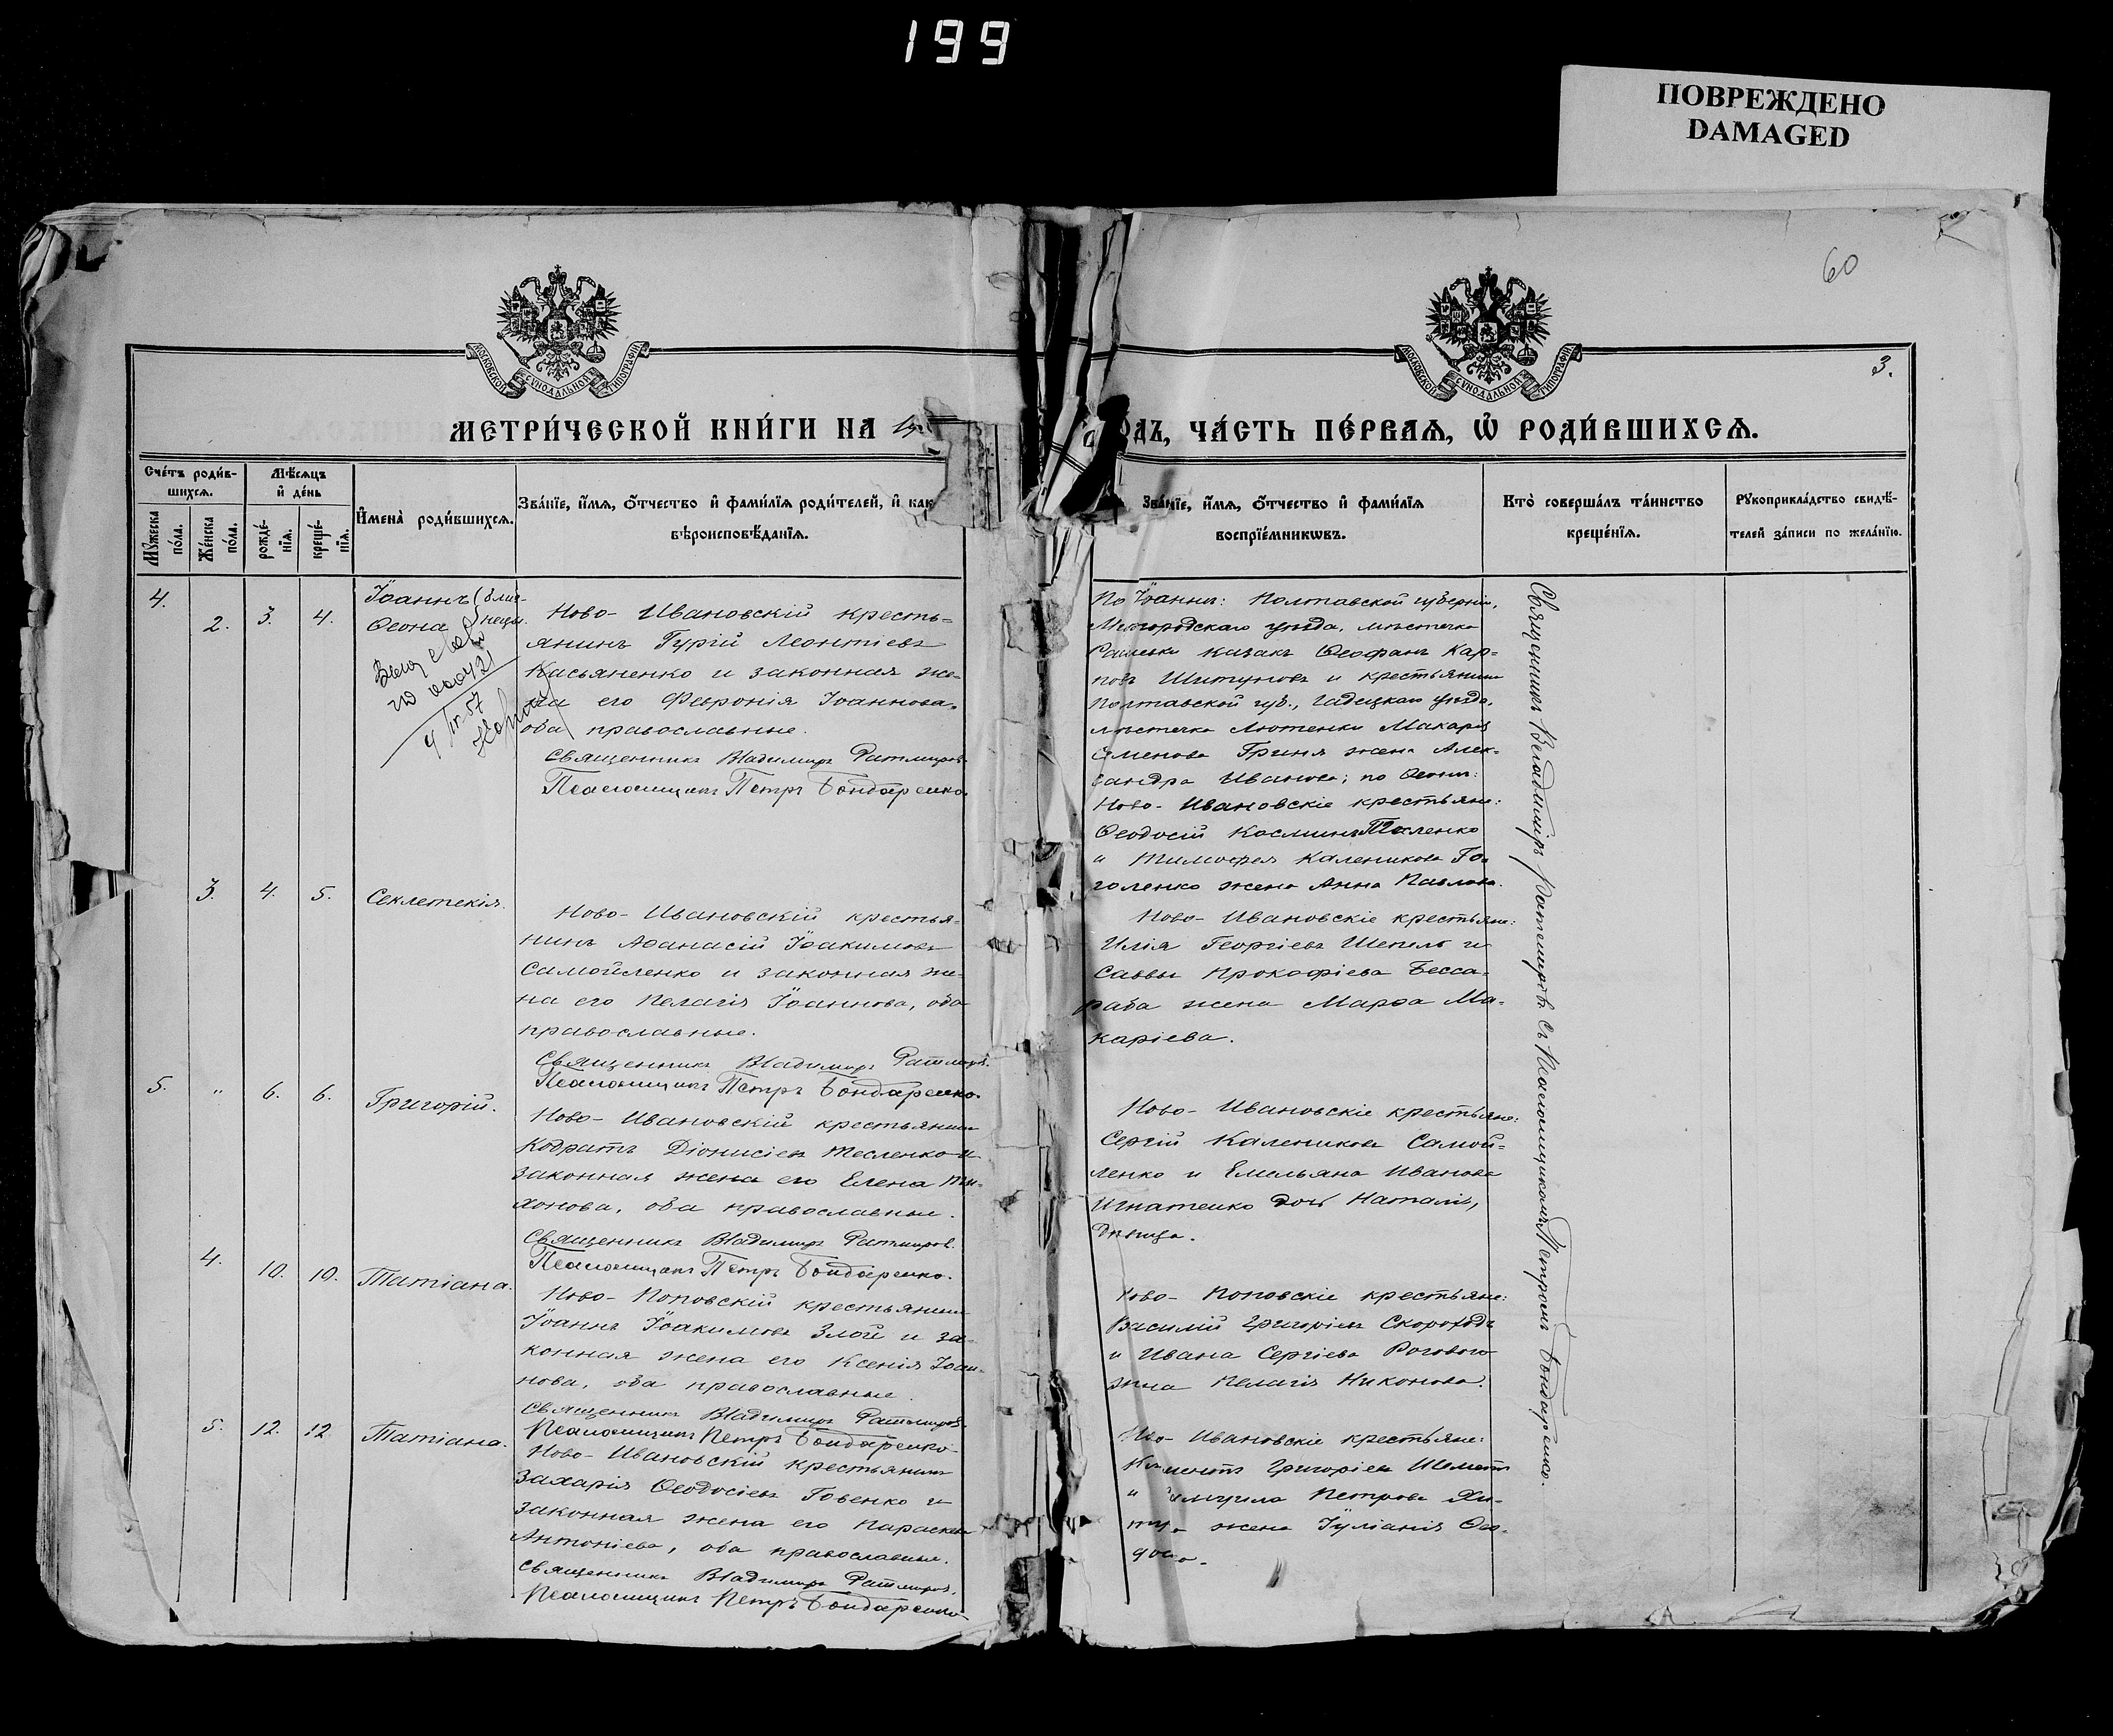 199
ПОВРЕЖДЕНО
DAMAGED
60
3.
МОСКОВСКОЙ СѴНОДАЛЬНОЙ ТИПОГРАФІИ
МОСКОВСКОЙ СѴНОДАЛЬНОЙ ТИПОГРАФІИ
МЕТРИ́ЧЕСКОЙ КНИ́ГИ НА
ОДЪ, ЧА́СТЬ ПЕ́РВАѦ, Ѡ РОДИ́ВШИХСѦ.
Сче́тъ роди́в-
шихсѧ.
Мѣ́сѧцъ
и҆ де́нь
Мꙋ́жеска по́ла.
Же́нска по́ла.
рожде́-нїѧ.
креще́-нїѧ.
И҆мена̀ роди́вшихсѧ.
Зва́нїе, и҆́мѧ, ѻ҆́тчество и҆ фами́лїѧ роди́телей, и҆ как
вѣроисповѣ́данїѧ.
Зва́нїе, и҆́мѧ, ѻ҆́тчество и҆ фами́лїѧ
воспрїе́мникѡвъ.
Кто̀ соверша́лъ та́инство
креще́нїѧ.
Рꙋкоприкла́дство свидѣ́-
телей за́писи по жела́нїю.
4. 2. 3. 4.
Іоаннъ (близ-
Ѳеона нецы.
Ново-Ивановскій кресть-
янинъ Гурій Леонтіевъ
Касьяненко и законная же-
на его Февронія Іоаннова,
оба православные.
Священникъ Владимиръ Ратмировъ.
Псаломщикъ Петръ Бондаренко.
По Іоаннѣ: Полтавской губерніи,
уѣзда, мѣстечка
казакъ Ѳеофанъ Кар-
повъ и крестьянина
Полтавской губ., Гадяцкаго уѣзда,
мѣстечка Лютенки Макарія
Семенова Гриня жена Алек-
сандра Иванова; по Ѳеонѣ:
Ново-Ивановскіе крестьяне:
Ѳеодосій Косминъ
и Тимоѳея Каленикова Го-
голенко жена Анна Павлова.
3. 4. 5.
Секлетекія.
Ново-Ивановскій крестья-
нинъ Аѳанасій Іоакимовъ
Самойленко и законная же-
на его Пелагія Іоаннова, оба
православные.
Священникъ Владимиръ Ратмировъ.
Псаломщикъ Петръ Бондаренко.
Ново-Ивановскіе крестьяне:
Илія Георгіевъ Шепель и
Саввы Прокофіева Бесса-
раба жена Марѳа Ма-
каріева.
5. " 6. 6.
Григорій.
Ново-Ивановскій крестьянинъ
Кодратъ Діонисіевъ Тесленко и
законная жена его Елена Ти-
хонова, оба православные.
Священникъ Владимиръ Ратмировъ.
Псаломщикъ Петръ Бондаренко.
Ново-Ивановскіе крестьяне:
Сергій Калениковъ Самой-
ленко и Емельяна Иванова
Игнатенко дочь Наталія,
дѣвица.
4. 10. 10.
Татіана.
Ново-Поповскій крестьянинъ
Іоаннъ Іоакимовъ Злой и за-
конная жена его Ксенія Іоан-
нова, оба православные.
Священникъ Владимиръ Ратмировъ.
Псаломщикъ Петръ Бондаренко.
Ново-Поповскіе крестьяне:
Василій Григоріевъ Скороходъ
и Ивана Сергіева Рогового
жена Пелагія Никонова.
5. 12. 12
Татіана.
Ново-Ивановскій крестьянинъ
Захарія Ѳеодосіевъ Говенко и
законная жена его Параскева
Антоніева, оба православные.
Священникъ Владимиръ Ратмировъ.
Псаломщикъ Петръ Бондаренко.
Ивановскіе крестьяне:
Григоріевъ
и Петрова
жена Іуліанія Ѳео-
Священникъ Владиміръ Ратмировъ съ Псаломщикомъ Петромъ Бондаренко.